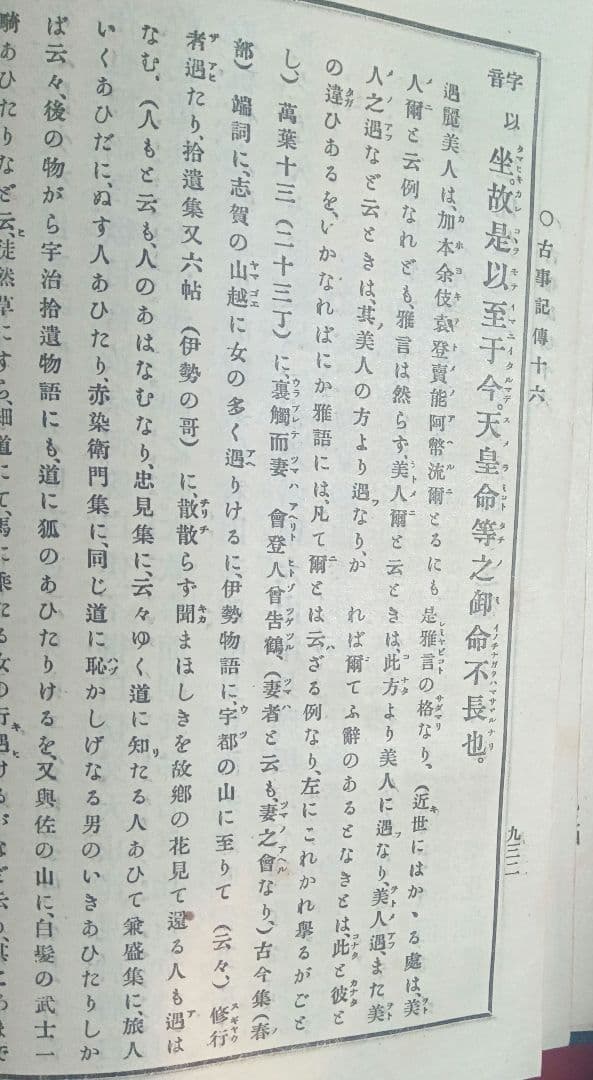 〇古事記傳十六
九三二
字音以坐。故是以至于今。天皇命等之御命不長也。
遇麗美人は、加本余伎袁登賣能阿幣流爾とるにも是雅言の格なり、(近世にはかゝる處は、美
人爾と云例なれども、雅言は然らず、美人爾と云ときは、此方より美人に遇なり、美人遇、また美
人之遇など云ときは、其美人の方より遇なり、かれば爾てふ辭のあるとなきとは、此と彼と
の違ひあるを、いかなればにか雅語には、凡て爾とは云ざる例なり、左にこれかれ擧るがごと
し)萬葉十三(二十三丁)に、裏觸而妻會登人曾告鶴、(妻者と云も、妻之會なり、)古今集(春
部)端詞に、志賀の山越に女の多く遇りけるに、伊勢物語に、宇都の山に至りて(云々、)修行
者遇たり、拾遺集又六帖(伊勢の哥)に散散らず聞まほしきを故鄕の花見て還る人も遇は
なむ、(人もと云も、人のあはなむなり、忠見集に、云々ゆく道に知たる人あひて兼盛集に、旅人
いくあひだに、ぬす人あひたり、赤染衞門集に、同じ道に恥かしげなる男のいきあひたりしか
ば云々、後の物がら宇治拾遺物語にも、道に狐のあひたりけるを、又與佐の山に、白髮の武士一
騎あひたりなど云、徒然草にすら、細道にて、馬に乘たる女の行遇ける